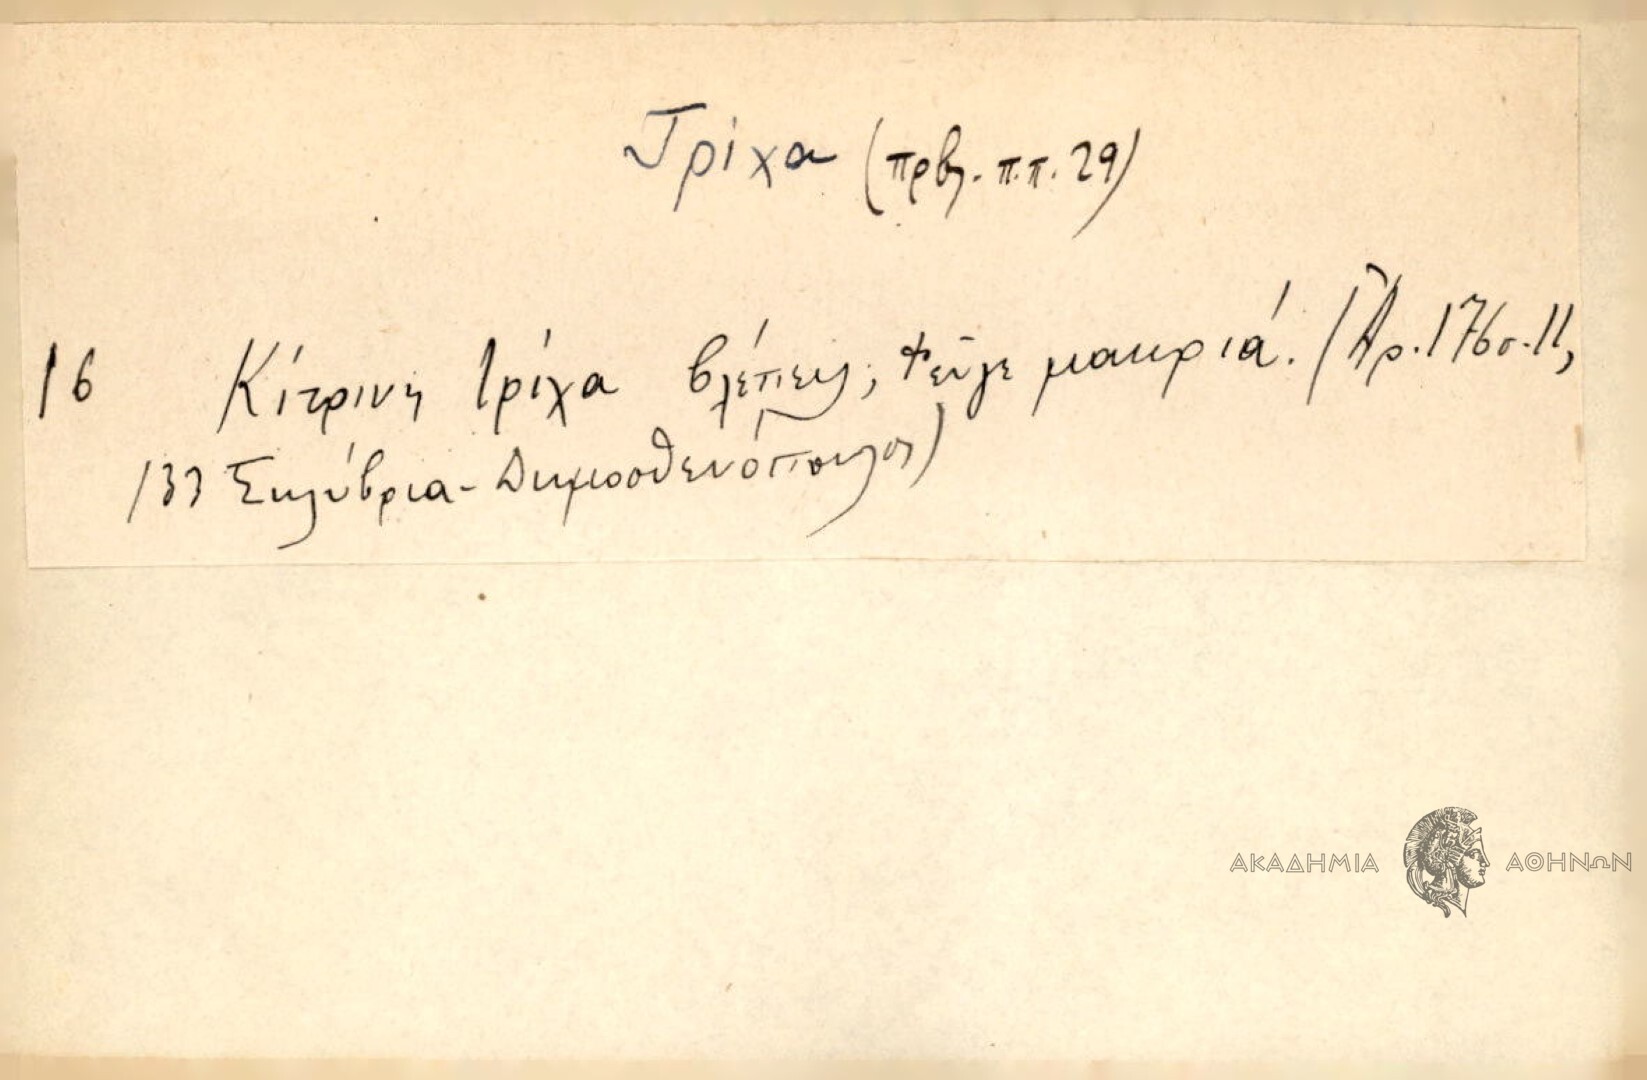 Τρίχα (πρβλ. π.π. 29)
16 Κίτρινη τρίχα βλέπεις; Φεύγε μακριά. (Ἀρ. 176 σ. 11,
133 Σηλύβρια - Δημοσθενόπουλος)
ΑΚΑΔΗΜΙΑ ΑΘΗΝΩΝ